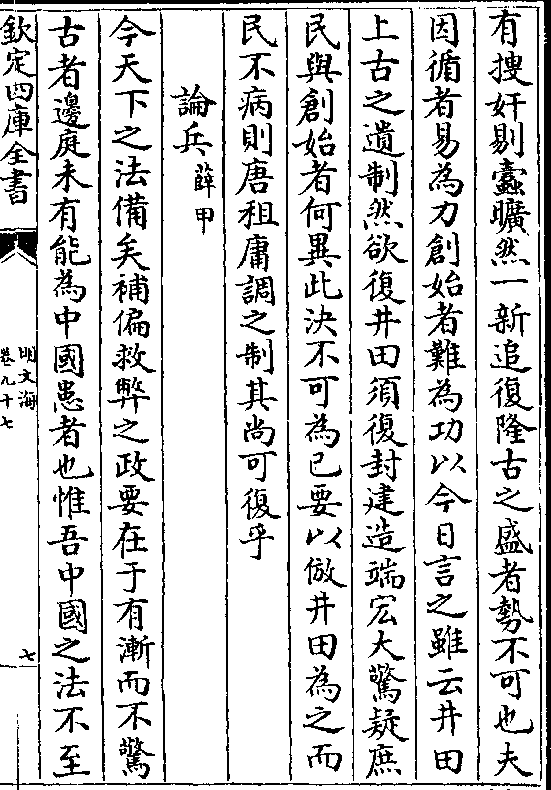 有搜奸剔蠧曠然一新追復隆古之盛者勢不可也夫
因循者易為力創始者難為功以今日言之雖云井田
上古之遺制然欲復井田須復封建造端宏大驚疑庶
民與創始者何異此決不可為已要以倣井田為之而
民不病則唐租庸調之制其尚可復乎
論兵薛甲
今天下之法備矣補偏救弊之政要在于有漸而不驚
古者邊庭未有能為中國患者也惟吾中國之法不至
欽定四庫全書
明文海
卷九十七
七